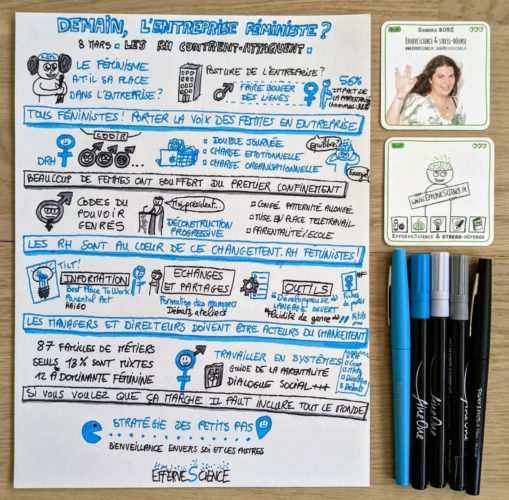 DEMAIN, L'ENTREPRISE FÉMINISTE?
8 MARS. LES RH CONTRENT-ATTAQUENT.
LE FÉMINISME
A T IL SA PLACE
DANS L'ENTREPRISE?
POSTURE DE L'ENTREPRISE?
FAIRE BOUGER
DES LIGNES
56%
IMPACT DE
LA PARENTALITÉ
TOUS FÉMINISTES! PORTER LA VOIX DES FEMMES EN ENTREPRISE
CODIR
DRH
DOUBLE JOURNÉE
CHARGE ÉMOTIONNELLE
CHARGE ORGANISATIONNELLE
Equilibre?
BEAUCOUP DE FEMMES ONT SOUFFERT DU PREMIER CONFINEMENT
CODES DU
POUVOIR
GENRÉS
DÉCONSTRUCTION
PROGRESSIVE
CONGÉ PATERNITÉ ALLONGÉ
MISE EN PLACE TELETRAVAIL
PARENTALITÉ/ECOLE
LES RH SONT AU COEUR DE CE CHANGEMENT. RH FEMINISTES!
TILT!
INFORMATION
Best Place To Work
Parental Act
ECHANGES
ET PARTAGES
Formation des Managers
Débats, ateliers
OUTILS
"Développeur·se"
LANGAGE OUVERT
"Fluidité de genre"
LES MANAGERS ET DIRECTEURS DOIVENT ÊTRE ACTEURS DU CHANGEMENT
87 FAMILLES DE MÉTIERS
SEULS 13% SONT MIXTES
12 À DOMINANTE FÉMININE
TRAVAILLER EN SYSTÈMES
GUIDE DE LA PARENTALITÉ
DIALOGUE SOCIAL +++
SI VOUS VOULEZ QUE ÇA MARCHE IL FAUT INCLURE TOUT LE MONDE
STRATÉGIE DES PETITS PAS
BIENVEILLANCE ENVERS SOI ET LES AUTRES
EFFERVESCIENCE
SANDRA BORÉ
EFFERVESCIENCE & STRESS-DÉFENSE
WWW.EFFERVESCIENCE.FR
EFFERVESCIENCE & STRESS-DÉFENSE
FineOne
FineOne
FineOne